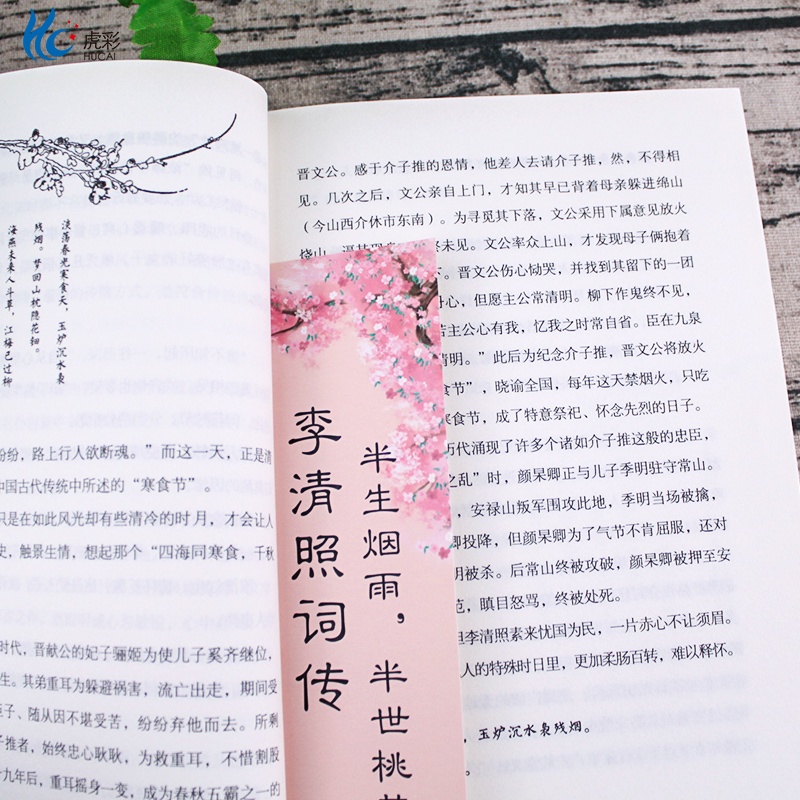 虎彩
HUCAI
淡荡春光寒食天，玉炉沉水袅
残烟。梦回山枕隐花钿。
海燕未来人斗草，江梅已过柳
纷，路上行人欲断魂。”而这一天，正是清
中国古代传统中所述的“寒食节”。
只是在如此风光却有些清冷的时月，才会让人
史，触景生情，想起那个“四海同寒食，千秋
时代，晋献公的妃子骊姬为使儿子奚齐继位，
生。其弟重耳为躲避祸害，流亡出走，期间受
子、随从因不堪受苦，纷纷弃他而去。所剩
子推者，始终忠心耿耿，为救重耳，不惜割股
十九年后，重耳摇身一变，成为春秋五霸之一的
李清照词传
半生烟雨，半世桃花
晋文公。感于介子推的恩情，他差人去请介子推，然，不得相
见。几次之后，文公亲自上门，才知其早已背着母亲躲进绵山
（今山西介休市东南）。为寻觅其下落，文公采用下属意见放火
烧山，逼其现身，终未见。文公率众上山，才发现母子俩抱着
。晋文公伤心恸哭，并找到其留下的一团
丹心，但愿主公常清明。柳下作鬼终不见，
若主公心有我，忆我之时常自省。臣在九泉
清明。”此后为纪念介子推，晋文公将放火
食节”，晓谕全国，每年这天禁烟火，只吃
寒食节，成了特意祭祀、怀念先烈的日子。
历代涌现了许多个诸如介子推这般的忠臣，
之乱”时，颜杲卿正与儿子季明驻守常山。
，安禄山叛军围攻此地，季明当场被擒，
卿投降，但颜杲卿为了气节不肯屈服，还对
明被杀。后常山终被攻破，颜杲卿被押至安
范，瞋目怒骂，终被处死。
但李清照素来忧国为民，一片赤心不让须眉。
人的特殊时日里，更加柔肠百转，难以释怀。
，玉炉沉水袅残烟。